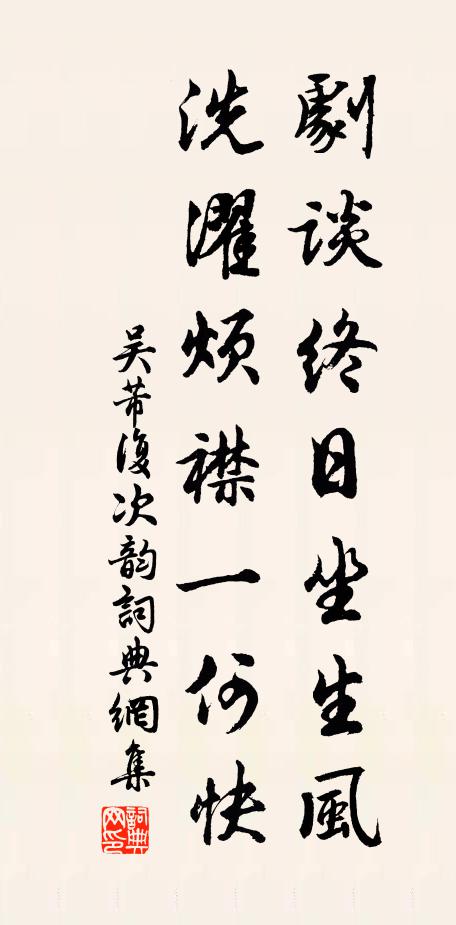 劇談終日坐生風
洗濯煩襟一何快
吳芾復次韵詞典網集
詞典网印